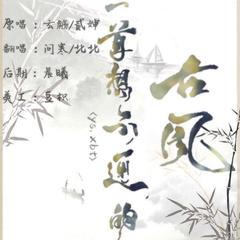 原唱：玄觞/贰婶
翻唱：问寒/北北
后期：晨曦
美工：豆积
一首想不通的
古风
(ys.xbt)